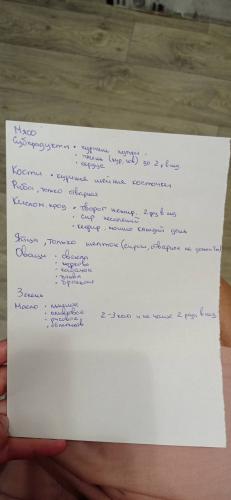 Мясо
Субпродукты • куриные
• печень (кур, гов) до 2 р в нед
• сердце
Кости • куриные шейные косточки
Рыба, только отварная
Кислом. прод • творог нежир. 2 р в нед
• сыр несолёный
• кефир, можно каждый день
Яйца, только желток
Овощи • свекла
• морковь
• кабачок
• тыква
• брокколи
Зелень
Масло • льняное
• оливковое
• рисовое 2-3 кап и не чаще 2 раз в нед